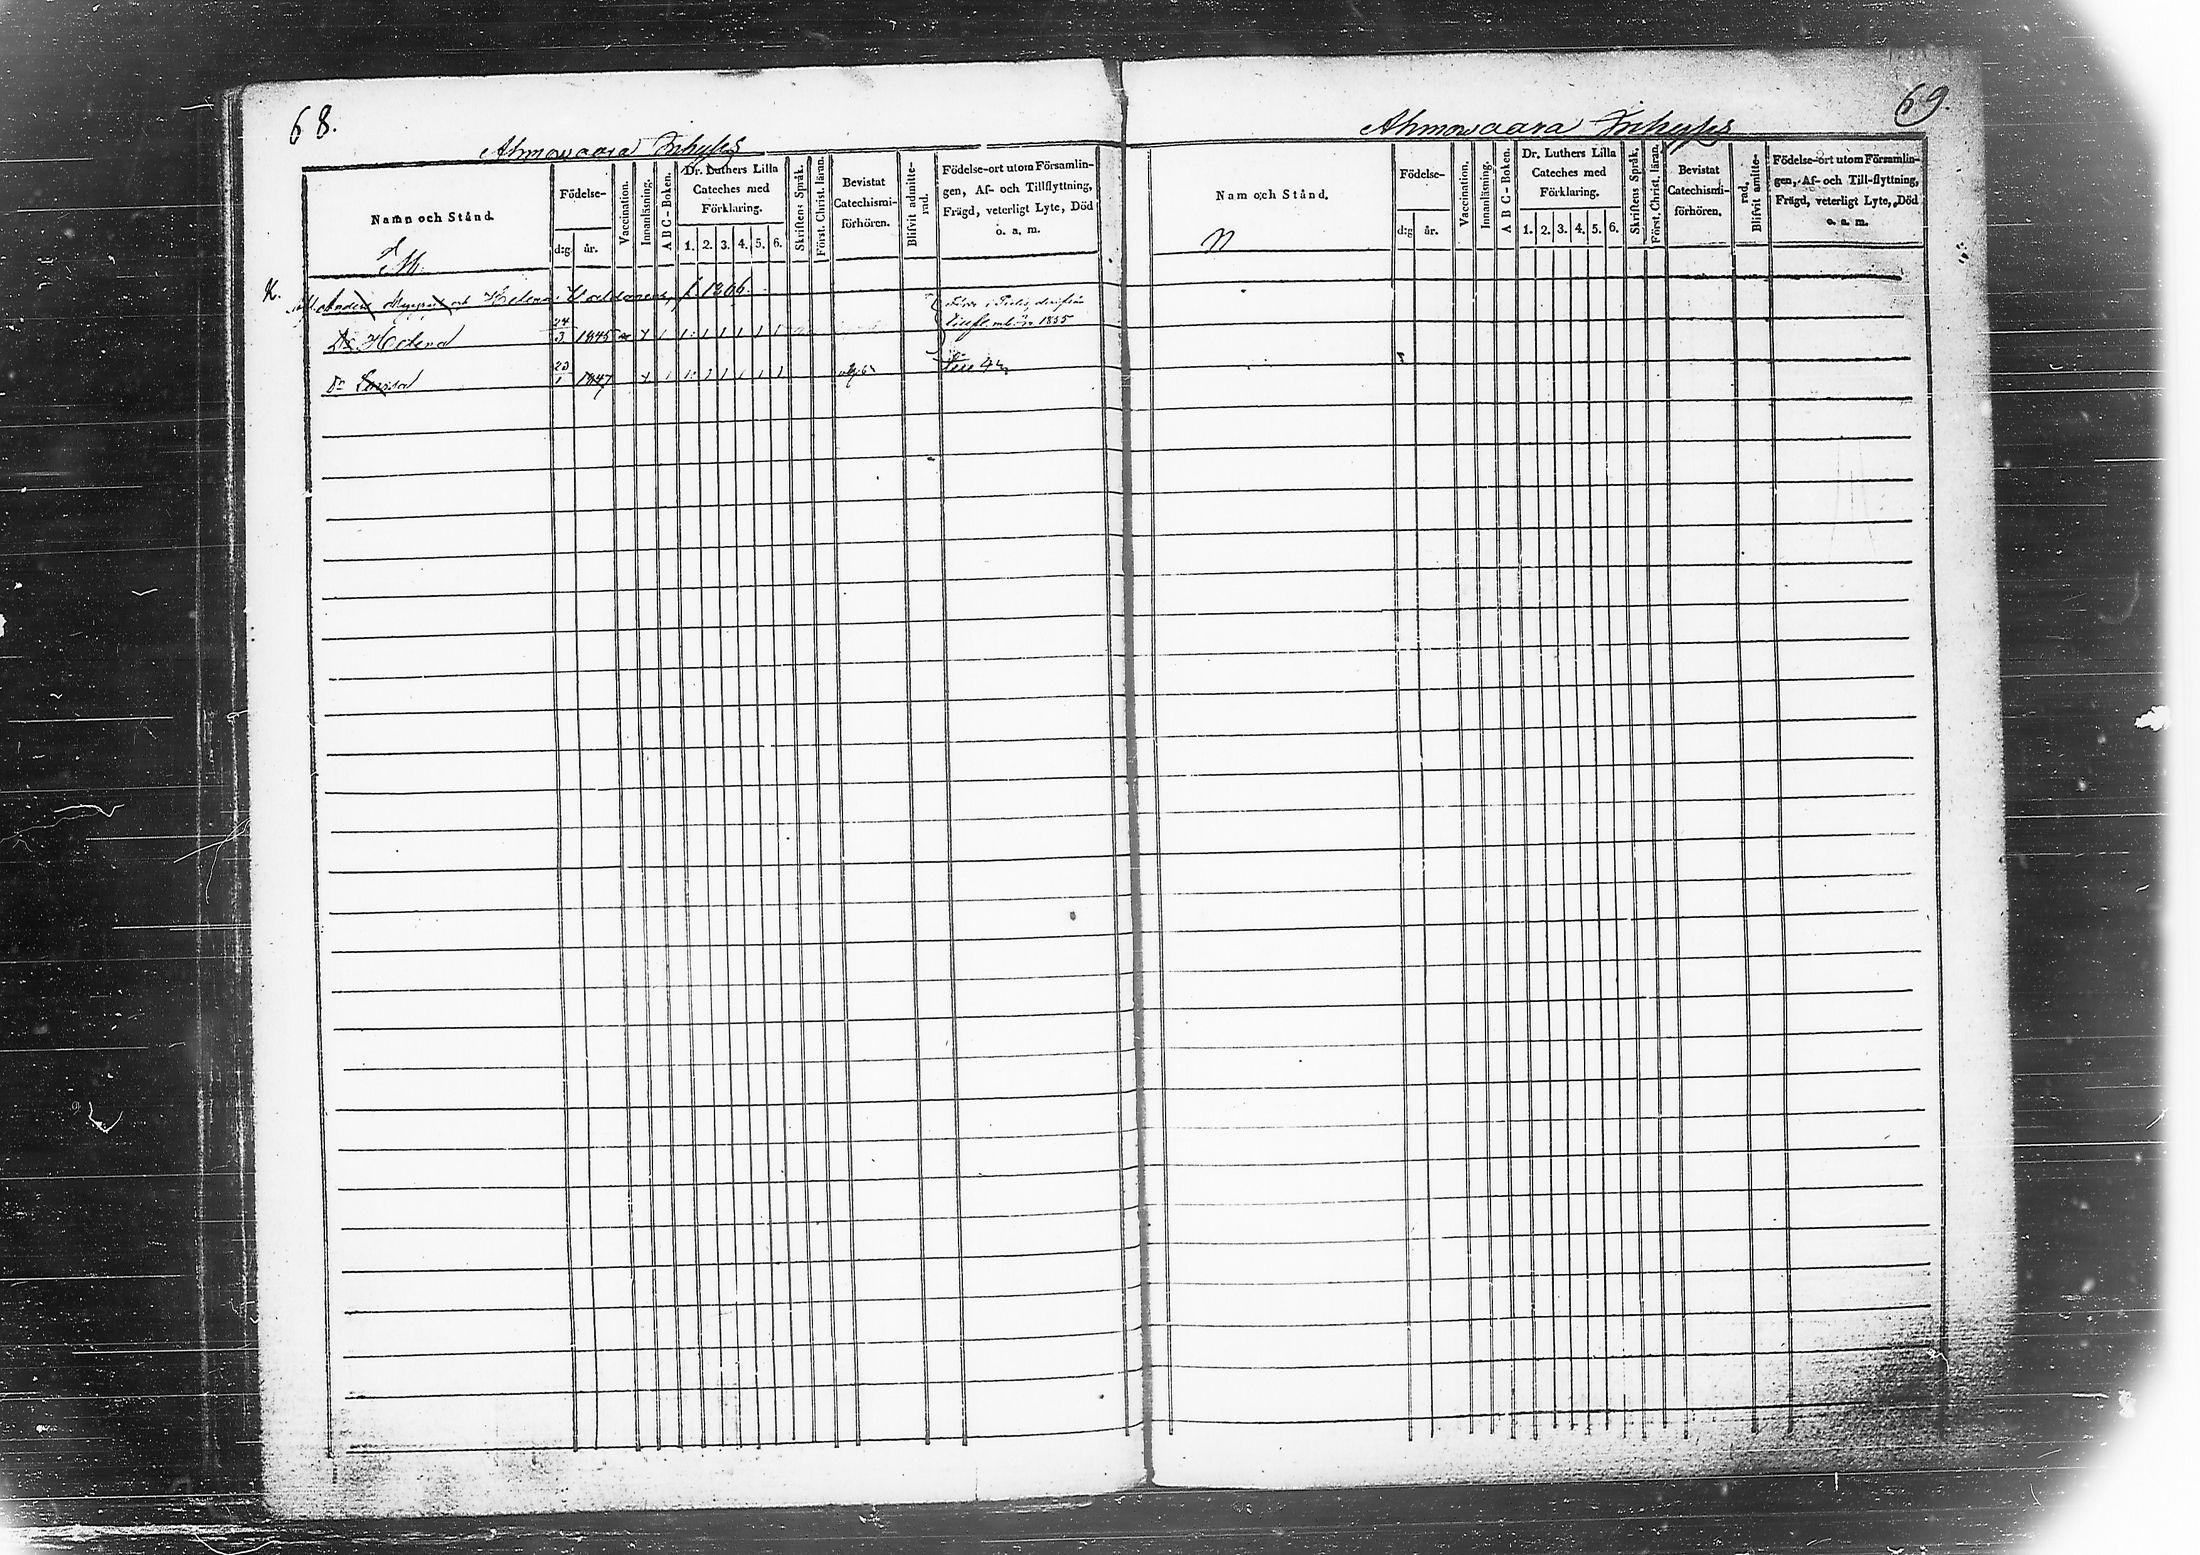 68.
Ahmowaara Inhyses
Namn och Stånd.
Födelse-
d:g år.
Vaccination.
Innanläsning.
A B C - Boken.
Dr. Luthers Lilla
Cateches med
Förklaring.
1. 2. 3. 4. 5. 6.
Skriftens Språk.
Först. Christ. läran.
Bevistat
Catechismi-
förhören.
Blifvit admitte-
rad.
Födelse-ort utom Församlin-
gen, Af- och Tillflyttning,
Frägd, veterligt Lyte, Död
o. a. m.
M.
K. Anders och Helena f. 1806.
Dr Helena 24/3 1845
1855
Dr Lovisa 23/1 1847
69.
Ahmowaara Inhyses
Namn och Stånd.
Födelse-
d:g år.
Vaccination.
Innanläsning.
A B C - Boken.
Dr. Luthers Lilla
Cateches med
Förklaring.
1. 2. 3. 4. 5. 6.
Skriftens Språk.
Först. Christ. läran.
Bevistat
Catechismi-
förhören.
Blifvit amitte-
rad.
Födelse-ort utom Församlin-
gen, Af- och Till-flyttning,
Frägd, veterligt Lyte, Död
o. a. m.
N